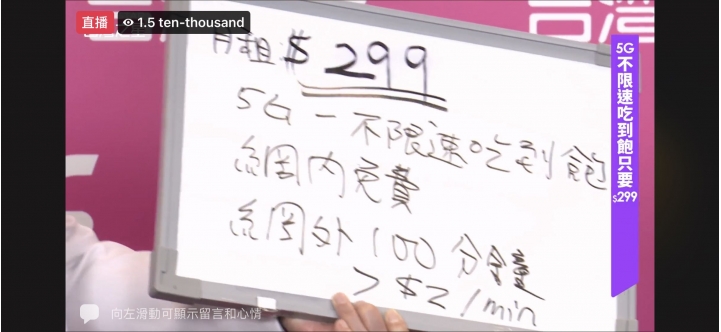 直播
1.5 ten-thousand
台灣
月租 $299
5G-不限速吃到飽
網內免費
網外100分鐘
>$2/min
5G不限速吃到飽只要$299
向左滑動可顯示留言和心情